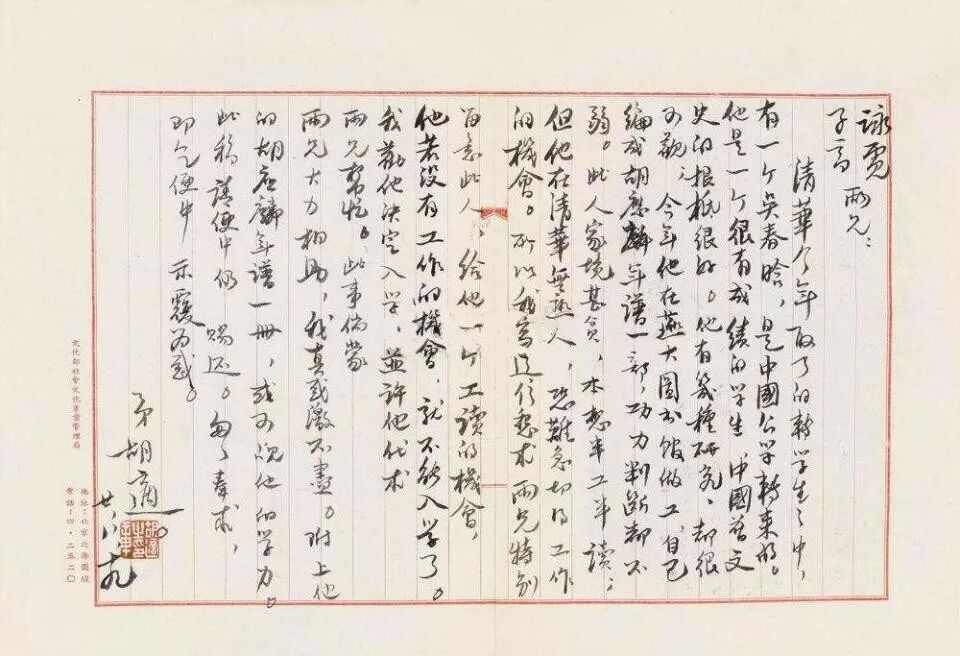 詠霓
子高 兩兄：
清華今年取了的轉學生之中，
有一个吳春晗，是中國公学轉來的。
他是一个很有成績的学生，中國舊文
史的根柢很好。他有幾種研究，都很
可觀，今年他在燕大圖书馆做工，自己
編成胡應麟年譜一部，功力判斷都不
弱。此人家境甚貧，本想半工半讀；
但他在清華無熟人，恐難急切得工作
的機會。所以我寫這信懇求兩兄特别
留意此人，给他一个工读的機會，
他若没有工作的機會，就不能入学了。
我勸他决定入学，並許他代求
兩兄幫忙。此事倘蒙
兩兄大力相助，我真感激不盡。附上他
的胡應麟年譜一册，或可觇他的学力。
此稿請便中仍賜还。匆匆奉求，
即乞便中示覆为感。
弟胡適。
廿，八，十九
文化部社會文化事業管理局
地址：北京北海團城
電話：四·二五二〇